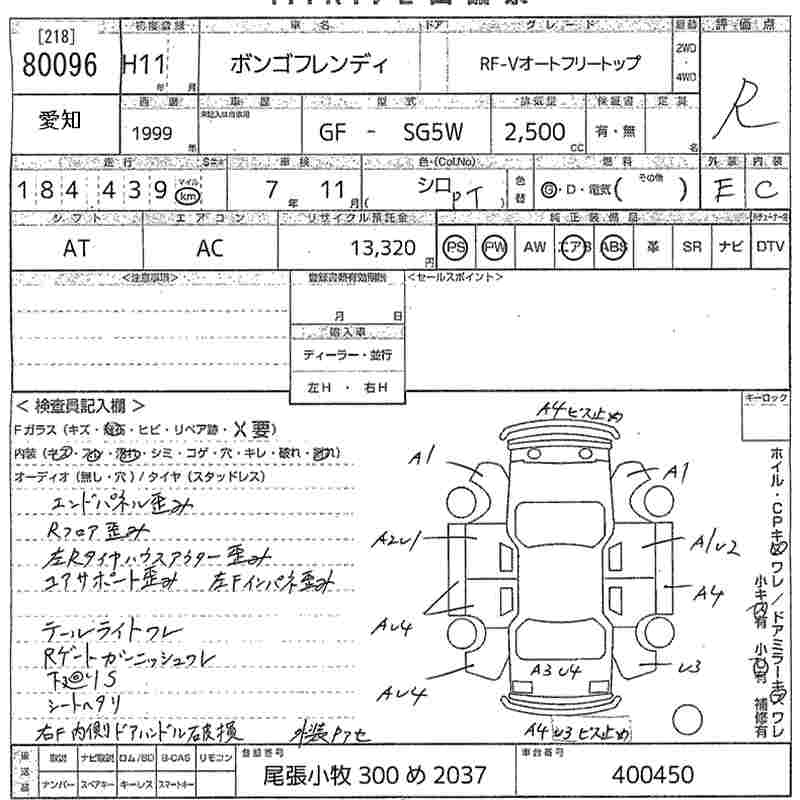 [218] 初度登録 車名 ドア グレード 駆動 評価点
80096 H11 年 月 ボンゴフレンディ RF-Vオートフリートップ 2WD ・ 4WD R
愛知 車歴 型式 排気量 保証書 定員
1999 年 GF - SG5W 2,500 CC 有・無 名
走行 車検 色(Col.No) 色替 燃料 その他 外装 内装
184,439 マイル km 7 年 11 月 シロ G・D・電気( ) E C
シフト エアコン リサイクル預託金 純正装備品
AT AC 13,320 円 PS PW AW エアB ABS 革 SR ナビ DTV
<注意事項> 登録書類有効期限 <セールスポイント>
月 日
輸入車
ディーラー・並行
左H ・ 右H
< 検査員記入欄 > キーロック
Fガラス(キズ・ ・ヒビ・リペア跡・X要)
内装(キズ・ ・ ・シミ・コゲ・穴・キレ・破れ・ れ)
オーディオ(無し・穴)/タイヤ(スタッドレス)
エンドパネル歪み
Rフロア歪み
左Rタイヤハウスアウター歪み
コアサポート歪み 左Fインパネ歪み
テールライトワレ
Rゲートガーニッシュワレ
下廻りS
シートヘタリ
右F内側ドアハンドル破損 外装アセ
A4 ビス止め
A1 A1
A2U1 A1U2
AU4 A4
AU4 A3 U4 U3
A4 U3 ビス止め
ホイル・CPキズ ワレ/ドアミラーキズ ワレ
小キズ有 小凹有 補修有
取説 ナビ取説 ロム/SD B-CAS リモコン 登録番号 車台番号
ナンバー スペアキー キーレス スマートキー 尾張小牧 300 め 2037 400450